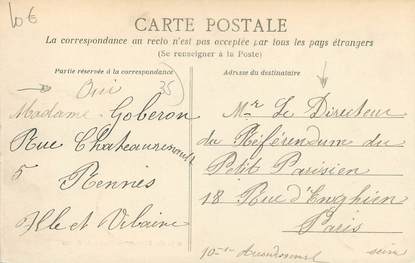 10€
CARTE POSTALE
La correspondance au recto n'est pas acceptée par tous les pays étrangers
(Se renseigner à la Poste)
Partie réservée à la correspondance
Adresse du destinataire
Oui
35
Madame Goberon
Rue Chateaurenault
5
Rennes
Ille et Vilaine
Mr Le Directeur
du Référendum du
Petit Parisien
18 Rue d'Enghien
Paris
10me Arrondissement
seine